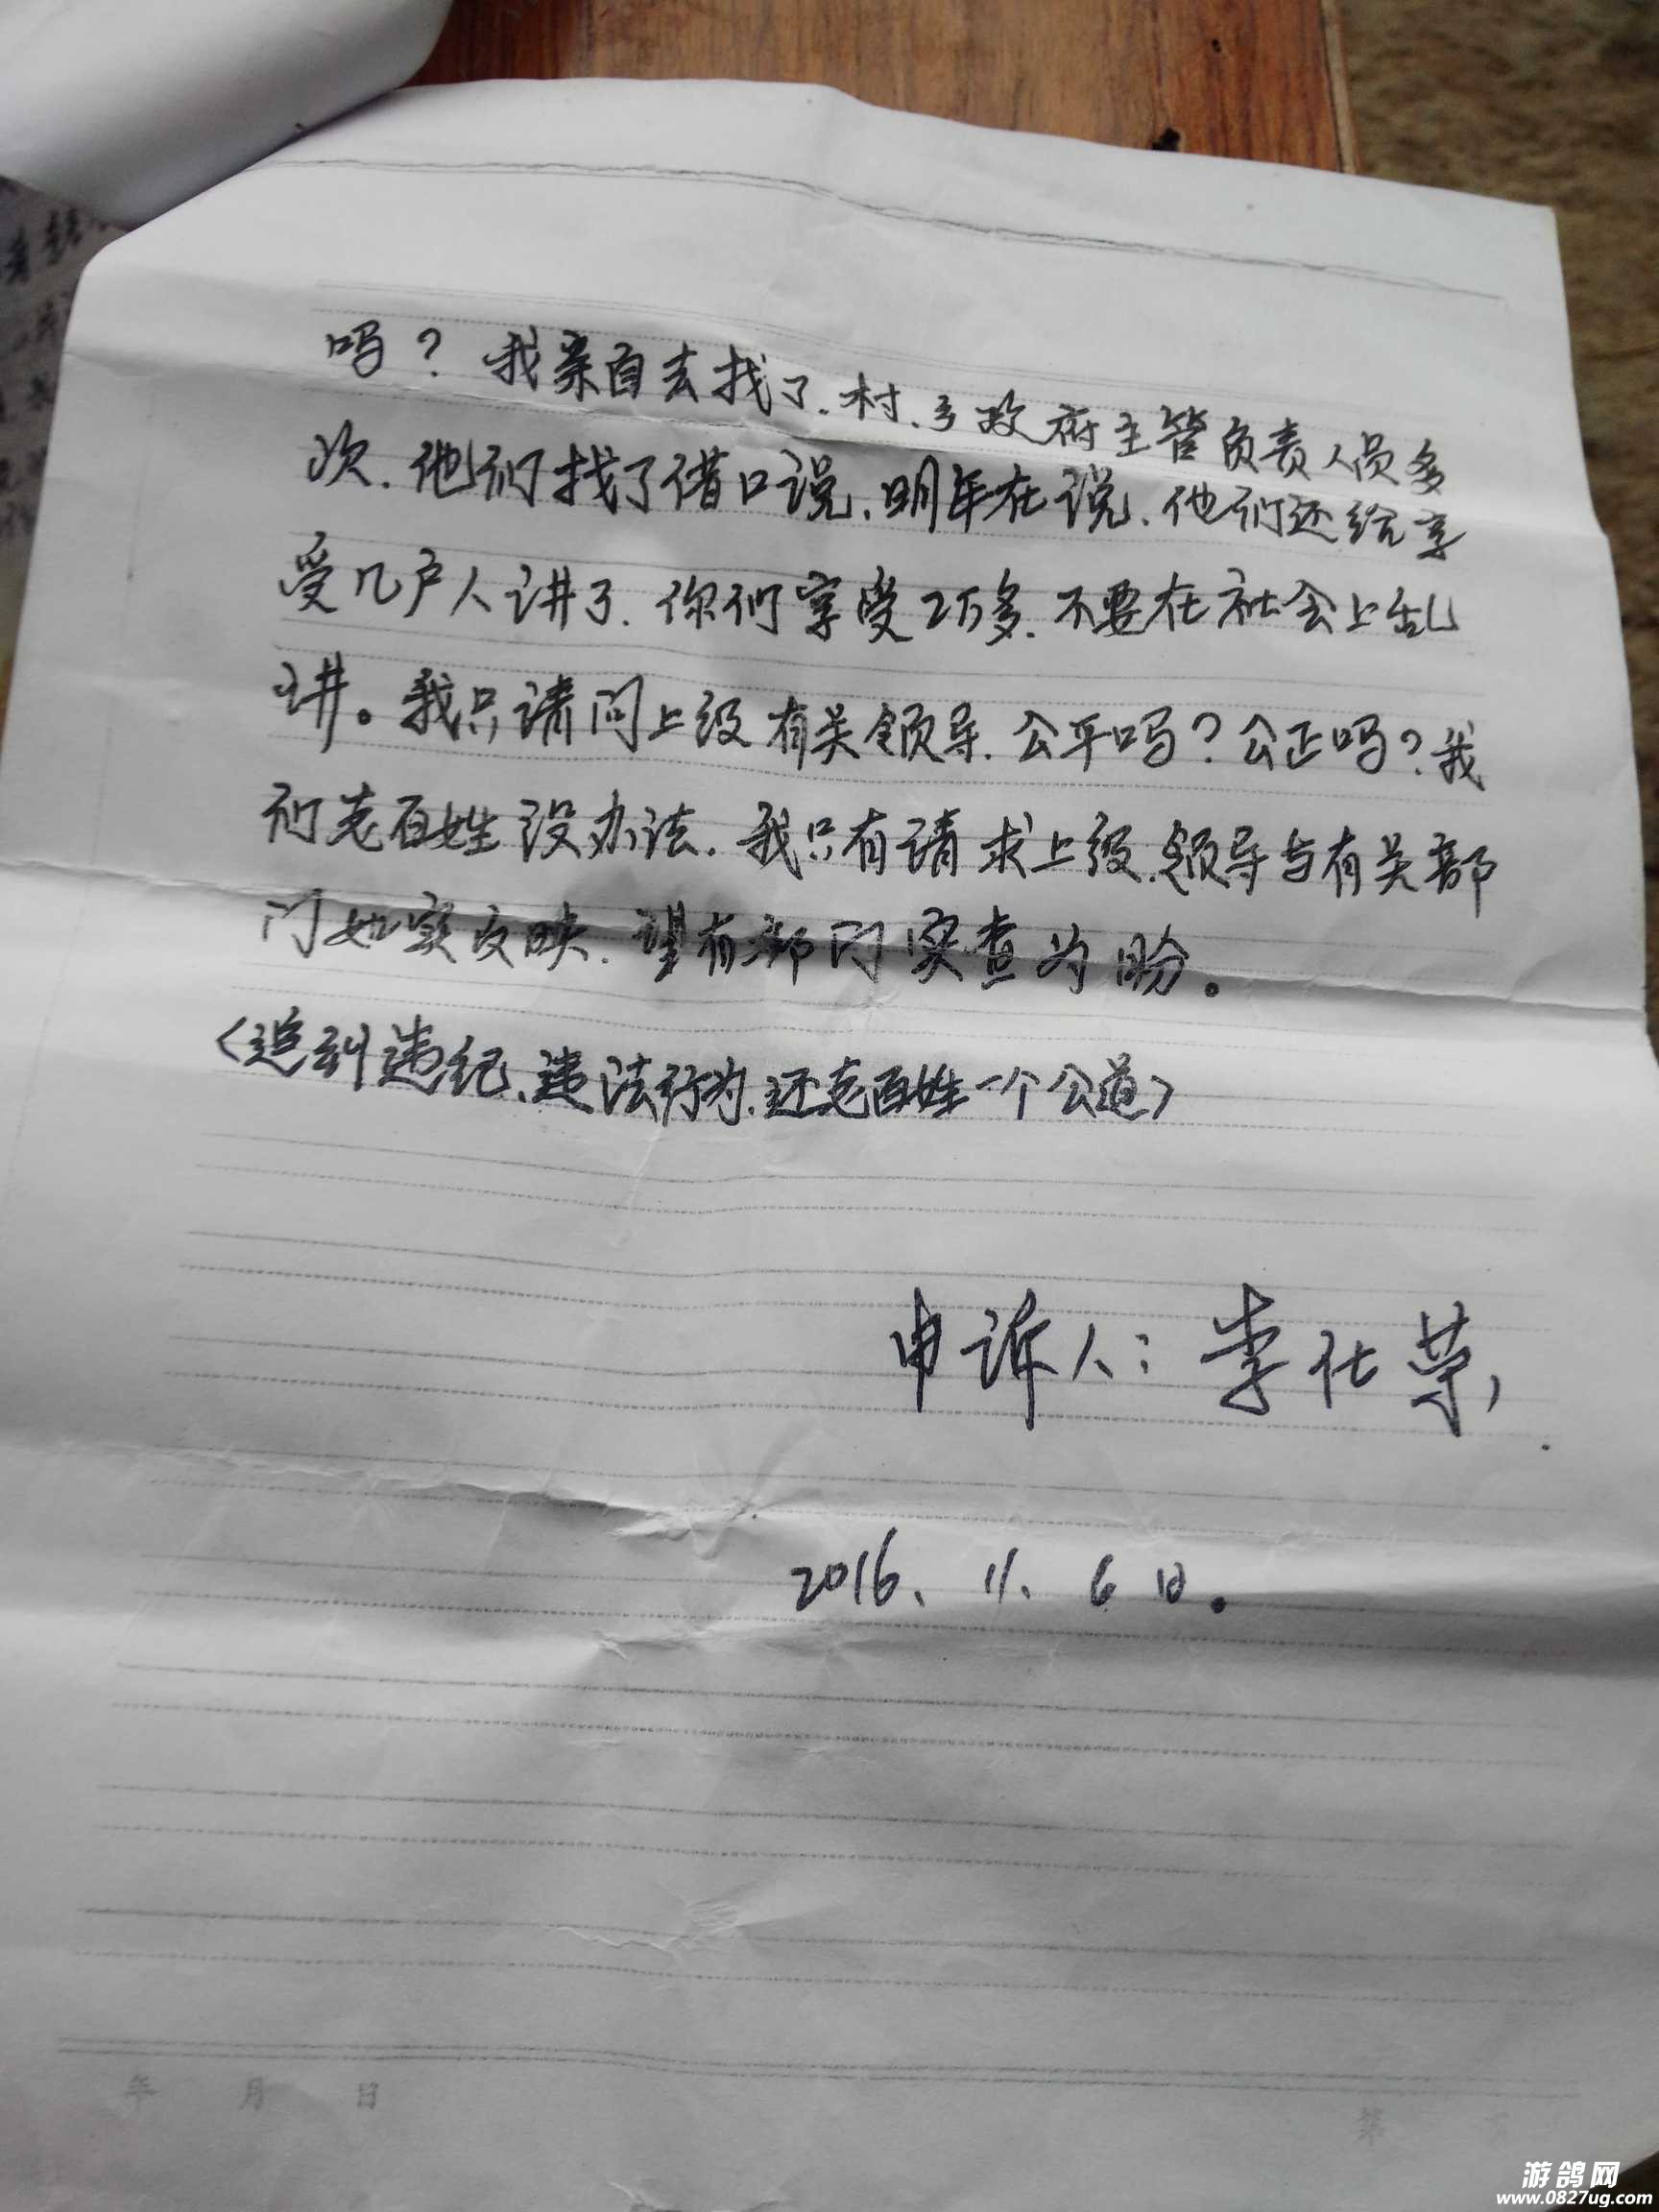 吗？我亲自去找了.村.乡政府主管负责人员多
次.他们找了借口说.明年在说.他们还给享
受几户人讲了.你们享受2万多.不要在社会上乱
讲。我只请问上级有关领导.公平吗？公正吗？我
们老百姓没办法.我只有请求上级.领导与有关部
门如实反映.望有部门实查为盼。
〈追纠违纪、违法行为.还老百姓一个公道〉
申诉人：李仕荣,
2016、11、6日。
年 月 日
第 页
游鸽网
www.0827ug.com